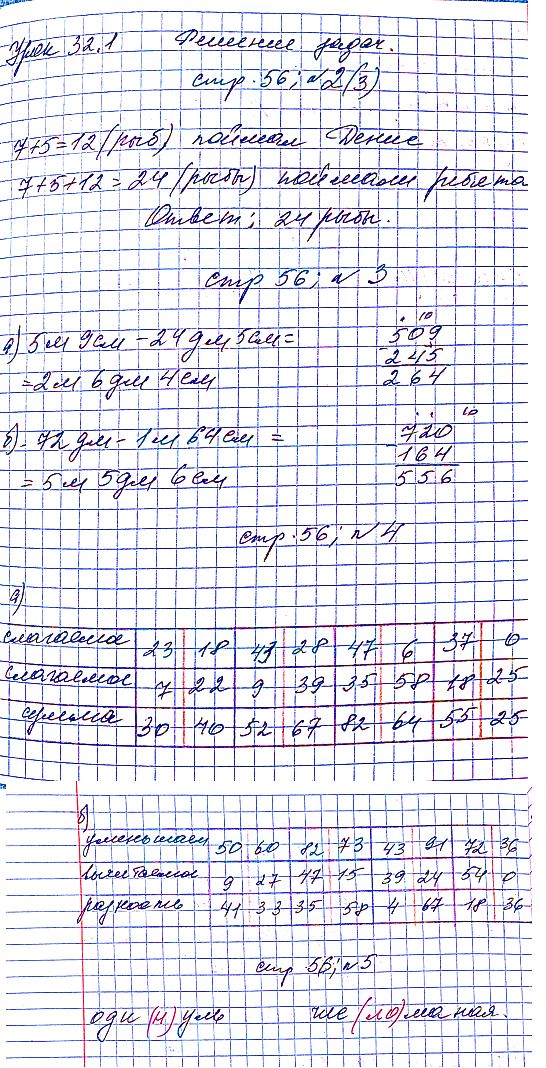 Урок 32.1 Решение задач.
стр. 56; №2(3)
7+5=12 (рыб) поймал Денис
7+5+12=24 (рыбы) поймали ребята
Ответ; 24 рыбы.
стр 56; № 3
а) 5м 9см - 24дм 5см =
= 2м 6дм 4см
10
509
- 245
264
б) 72дм - 1м 64см =
= 5м 5дм 6см
10
720
- 164
556
стр. 56; № 4
а)
слагаемое 23 18 43 28 47 6 37 0
слагаемое 7 22 9 39 35 58 18 25
сумма 30 40 52 67 82 64 55 25
б)
уменьшаем 50 60 82 73 43 91 72 36
вычитаемое 9 27 47 15 39 24 54 0
разность 41 33 35 58 4 67 18 36
стр 56; №5
оди (н) уль чис (ло) маная.